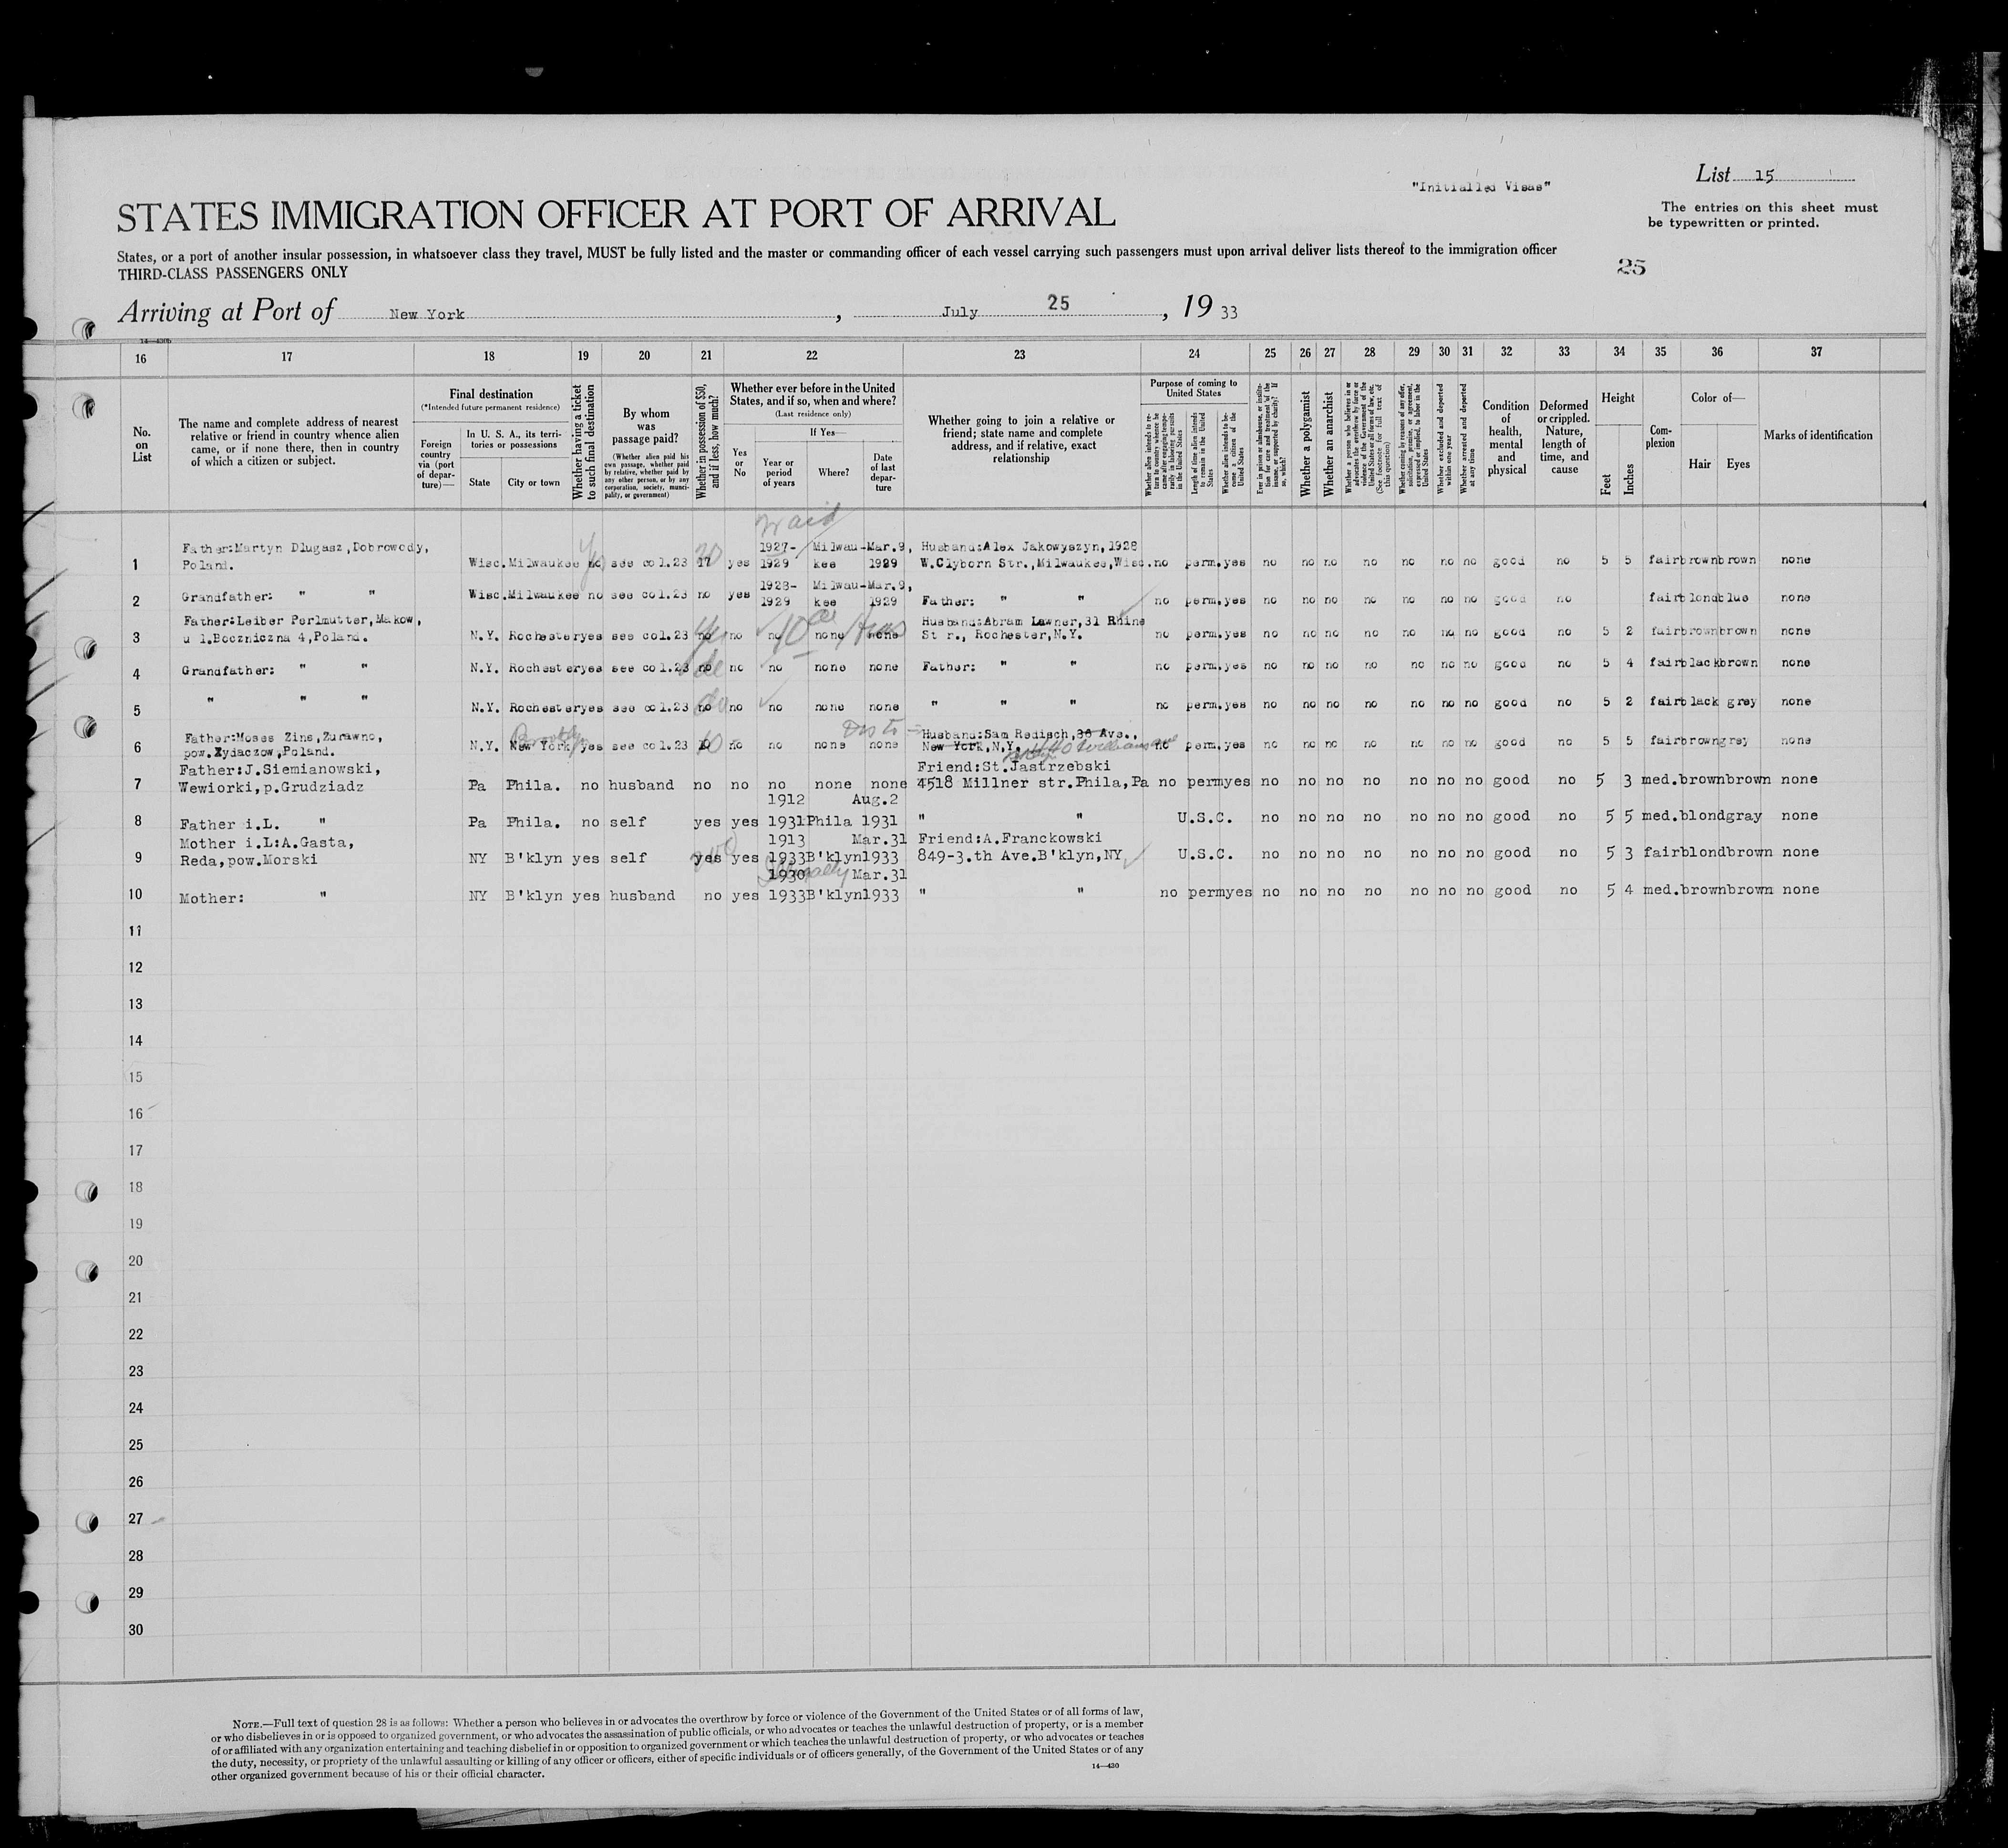 List 15
"Initialled Visas"
The entries on this sheet must
be typewritten or printed.
STATES IMMIGRATION OFFICER AT PORT OF ARRIVAL
States, or a port of another insular possession, in whatsoever class they travel, MUST be fully listed and the master or commanding officer of each vessel carrying such passengers must upon arrival deliver lists thereof to the immigration officer
THIRD-CLASS PASSENGERS ONLY
25
Arriving at Port of New York, July 25, 1933
16 17 18 19 20 21 22 23 24 25 26 27 28 29 30 31 32 33 34 35 36 37
No.
on
List
The name and complete address of nearest
relative or friend in country whence alien
came, or if none there, then in country
of which a citizen or subject.
Final destination
(*Intended future permanent residence)
Foreign
country
via (port
of depar-
ture)—
In U. S. A., its terri-
tories or possessions
State
City or town
Whether having a ticket
to such final destination
By whom
was
passage paid?
(Whether alien paid his
own passage, whether paid
by relative, whether paid by
any other person, or by any
corporation, society, munici-
pality, or government)
Whether in possession of $50,
and if less, how much?
Whether ever before in the United
States, and if so, when and where?
(Last residence only)
Yes
or
No
If Yes—
Year or
period
of years
Where?
Date
of last
depar-
ture
Whether going to join a relative or
friend; state name and complete
address, and if relative, exact
relationship
Purpose of coming to
United States
Whether alien intends to re-
turn to country whence he
came after engaging tempo-
rarily in laboring pursuits
in the United States
Length of time alien intends
to remain in the United
States
Whether alien intends to be-
come a citizen of the
United States
Ever in prison or almshouse, or institu-
tion for care and treatment of the
insane, or supported by charity? If
so, which?
Whether a polygamist
Whether an anarchist
Whether a person who believes in or
advocates the overthrow by force or
violence of the Government of the
United States or all forms of law, etc.
(See footnote for full text of
this question)
Whether coming by reasons of any offer,
solicitation, promise, or agreement,
expressed or implied, to labor in the
United States
Whether excluded and deported
within one year
Whether arrested and deported
at any time
Condition
of
health,
mental
and
physical
Deformed
or crippled.
Nature,
length of
time, and
cause
Height
Feet
Inches
Com-
plexion
Color of—
Hair
Eyes
Marks of identification
Father:Martyn Dlugasz,Dobrowody, 1927- Milwau-Mar.9, Husband:Alex Jakowyszyn,1928
1 Poland. Wisc. Milwaukee no see col.23 17 yes 1929 kee 1929 W.Clyborn Str.,Milwaukee,Wisc. no perm. yes no no no no no no no good no 5 5 fair brown brown none
1928- Milwau-Mar.9,
2 Grandfather: " " Wisc. Milwaukee no see col.23 no yes 1929 kee 1929 Father: " " no perm. yes no no no no no no no good no fair blond blue none
Father:Leiber Perlmutter,Makow, Husband:Abram Lawner,31 Rhine
3 u l.Boczniczna 4,Poland. N.Y. Rochester yes see col.23 no no no none none St r., Rochester,N.Y. no perm. yes no no no no no no no good no 5 2 fair brown brown none
4 Grandfather: " " N.Y. Rochester yes see col.23 no no no none none Father: " " no perm. yes no no no no no no no good no 5 4 fair black brown none
5 " " " N.Y. Rochester yes see col.23 no no no none none " " " no perm. yes no no no no no no no good no 5 2 fair black grey none
Father:Moses Zins,Zurawno, Brooklyn Husband:Sam Redisch,36 Ave.,
6 pow.Zydaczow,Poland. N.Y. New York yes see col.23 10 no no none none New York,N.Y. no perm. yes no no no no no no no good no 5 5 fair brown grey none
Father:J.Siemianowski, Friend:St.Jastrzebski
7 Wewiorki,p.Grudziadz Pa Phila. no husband no no no none none 4518 Millner str.Phila,Pa no perm yes no no no no no no no good no 5 3 med. brown brown none
1912 Aug.2
8 Father i.L. " Pa Phila. no self yes yes 1931 Phila 1931 " " U.S.C. no no no no no no no good no 5 5 med. blond gray none
Mother i.L:A.Gasta, 1913 Mar.31 Friend:A.Franckowski
9 Reda,pow.Morski NY B'klyn yes self yes yes 1933 B'klyn 1933 849-3.th Ave.B'klyn,NY U.S.C. no no no no no no no good no 5 3 fair blond brown none
1930 Mar.31
10 Mother: " NY B'klyn yes husband no yes 1933 B'klyn 1933 " " no perm yes no no no no no no no good no 5 4 med. brown brown none
11
12
13
14
15
16
17
18
19
20
21
22
23
24
25
26
27
28
29
30
NOTE.—Full text of question 28 is as follows: Whether a person who believes in or advocates the overthrow by force or violence of the Government of the United States or of all forms of law,
or who disbelieves in or is opposed to organized government, or who advocates the assassination of public officials, or who advocates or teaches the unlawful destruction of property, or is a member
of or affiliated with any organization entertaining and teaching disbelief in or opposition to organized government or which teaches the unlawful destruction of property, or who advocates or teaches
the duty, necessity, or propriety of the unlawful assaulting or killing of any officer or officers, either of specific individuals or of officers generally, of the Government of the United States or of any
other organized government because of his or their official character.
14—430